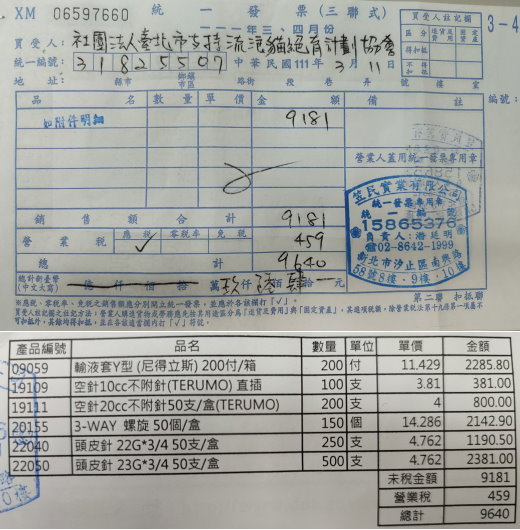 XM 06597660 統一發票(三聯式)
一一一年三、四月份
買受人註記欄
3-4
買受人: 社團法人臺北市支持流浪貓絕育計劃協會
統一編號: 31825507 中華民國111年3月11日
區分 進貨及費用 固定資產
得扣抵
不得扣抵
地址: 縣市 鄉鎮市區 路街 段 巷 弄 號 樓 室
品名 數量 單價 金額 備註
編號:
如附件明細 9181
營業人蓋用統一發票專用章
笠民實業有限公司
統一發票專用章
統一編號
15865376
負責人:潘廷明
☎02-8642-1999
新北市汐止區南興路
58號8樓、9樓、10樓
銷售額合計 9181
營業稅 應稅 ✓ 零稅率 免稅 459
總計 9640
總計新臺幣(中文大寫) 億 仟 佰 拾 萬 玖仟 陸佰 肆拾
※應稅、零稅率、免稅之銷售額應分別開立統一發票,並應於各該欄打「✓」。
第二聯 扣抵聯
產品編號 品名 數量 單位 單價 金額
09059 輸液套Y型 (尼得立斯) 200付/箱 200 付 11.429 2285.80
19109 空針10cc不附針(TERUMO) 直插 100 支 3.81 381.00
19111 空針20cc不附針50支/盒(TERUMO) 200 支 4 800.00
20155 3-WAY 螺旋 50個/盒 150 個 14.286 2142.90
22040 頭皮針 22G*3/4 50支/盒 250 支 4.762 1190.50
22050 頭皮針 23G*3/4 50支/盒 500 支 4.762 2381.00
未稅金額 9181
營業稅 459
總計 9640